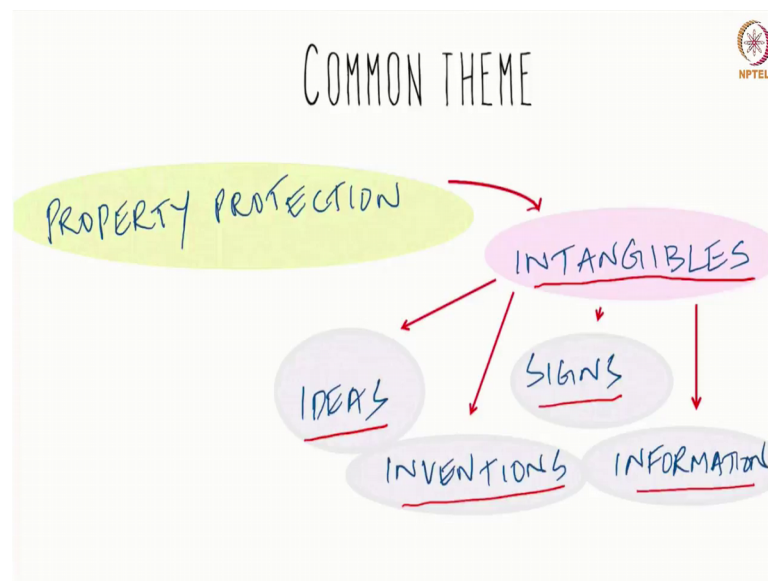 COMMON THEME
NPTEL
PROPERTY PROTECTION
INTANGIBLES
IDEAS
SIGNS
INVENTIONS
INFORMATION